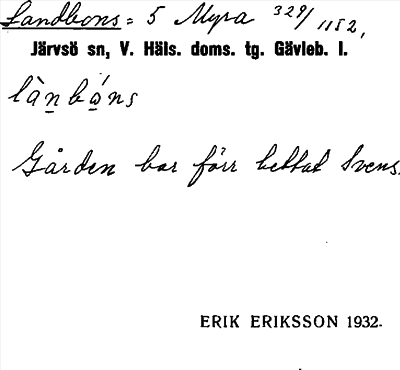 Landbons = 5 Myra 329/1152,
Järvsö sn, V. Häls. doms. tg. Gävleb. l.
Gården har förr hettat Svens.
ERIK ERIKSSON 1932.